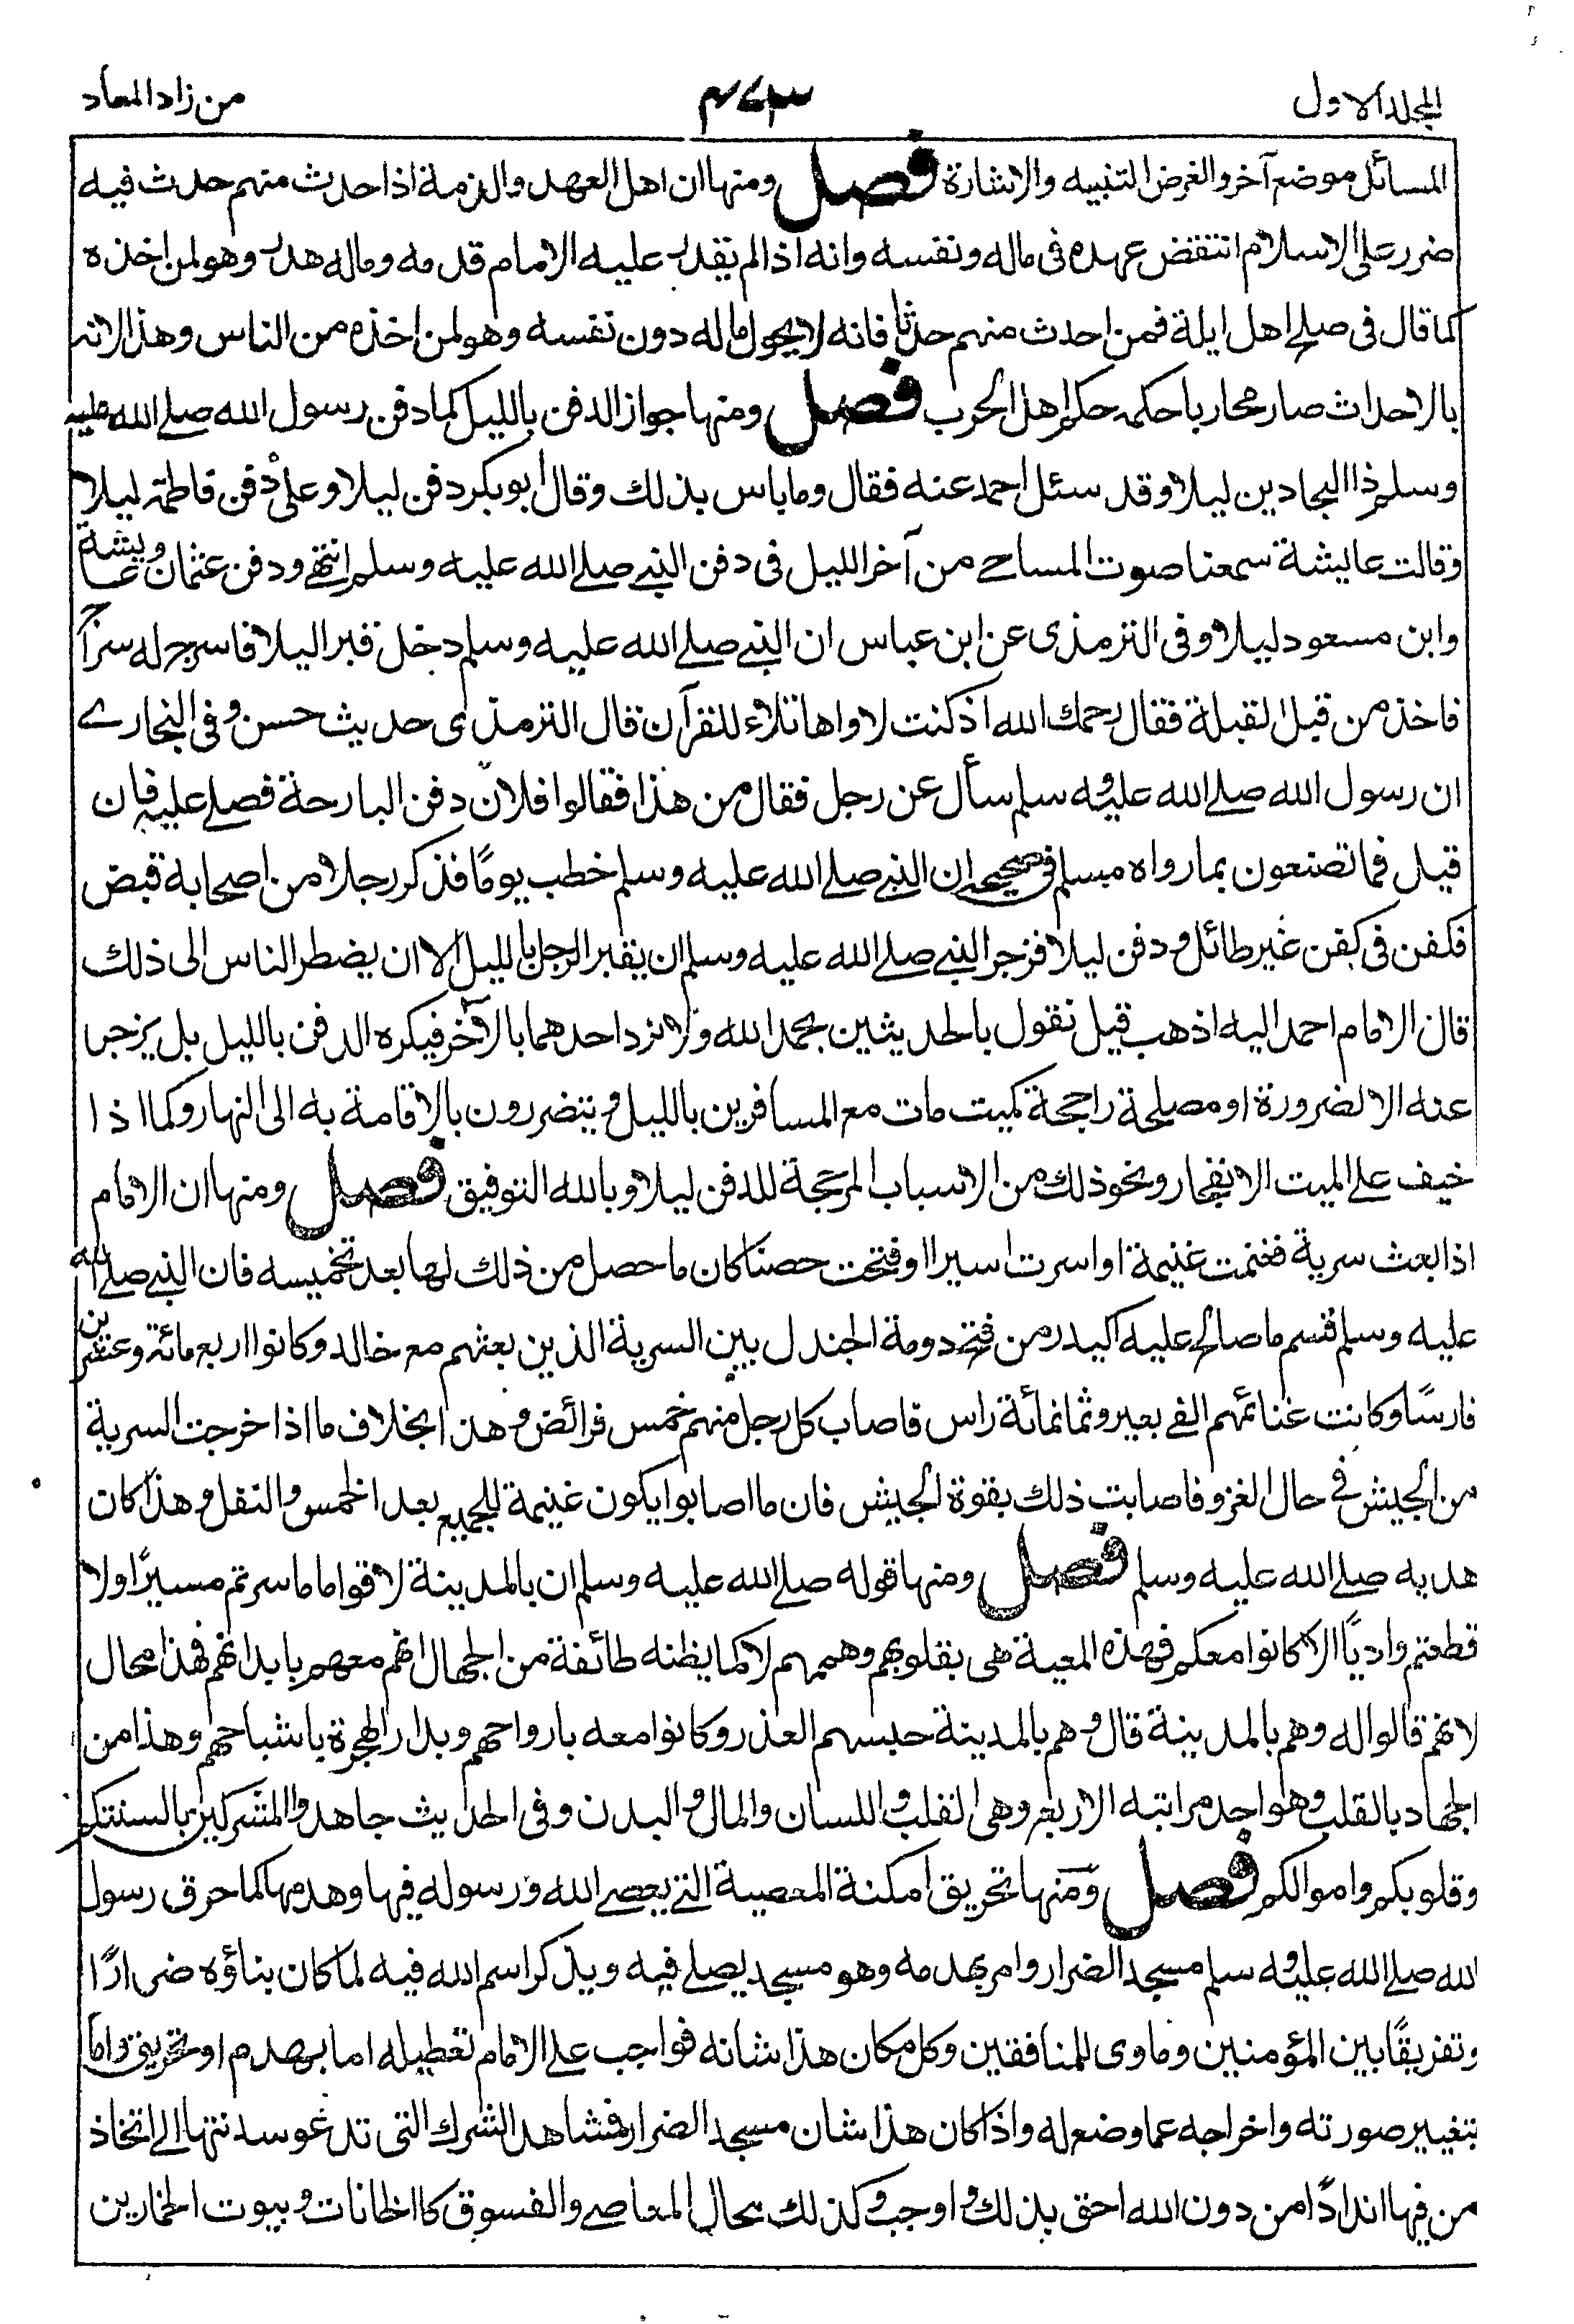 المجلد الاول
٤٧٣
من زاد المعاد
المسائل موضع آخر والغرض التنبيه والاشارة فصل ومنها ان اهل العهد والذمة اذا حدث منهم حدث فيه
ضرر على الاسلام انتقض عهده فى ماله ونفسه وانه اذا لم يقدر عليه الامام فدمه وماله هدر وهو لمن اخذه
كما قال فى صلح اهل ايلة فمن احدث منهم حدثا فانه لا يحول ماله دون نفسه وهو لمن اخذه من الناس وهذا لانه
بالاحداث صار محاربا حكمه حكم اهل الحرب فصل ومنها جواز الدفن بالليل كما دفن رسول الله صلے الله عليه
وسلم ذا البجادين ليلا وقد سئل احمد عنه فقال وما باس بذلك وقال ابو بكر دفن ليلا وعلى دفن فاطمة ليلا
وقالت عايشة سمعنا صوت المساحے من آخر الليل فى دفن النبے صلے الله عليه وسلم انتهے ودفن عثمان وعايشة
وابن مسعود ليلا وفى الترمذى عن ابن عباس ان النبے صلے الله عليه وسلم دخل قبرا ليلا فاسرج له سراج
فاخذ من قبل القبلة فقال رحمك الله ان كنت لاواها تلاء للقرآن قال الترمذى حديث حسن وفى البخارے
ان رسول الله صلے الله عليه وسلم سأل عن رجل فقال من هذا فقالوا فلان دفن البارحة فصلے عليه فان
قيل فما تصنعون بما رواه مسلم فى صحيحه ان النبے صلے الله عليه وسلم خطب يومًا فذكر رجلا من اصحابه قبض
فكفن فى كفن غير طائل ودفن ليلا فزجر النبے صلے الله عليه وسلم ان يقبر الرجل بالليل الا ان يضطر الناس الى ذلك
قال الامام احمد اليه اذهب قيل نقول بالحديثين بحمد الله ولا نرد احدهما بالآخر فيكره الدفن بالليل بل يزجر
عنه الا لضرورة او مصلحة راجحة كميت مات مع المسافرين بالليل ويتضررون بالاقامة به الى النهار وكما اذا
خيف على الميت الانفجار ونحو ذلك من الاسباب المرجحة للدفن ليلا وبالله التوفيق فصل ومنها ان الامام
اذا بعث سرية فغنمت غنيمة او اسرت اسيرا او فتحت حصنا كان ما حصل من ذلك لها بعد تخميسه فان النبے صلے الله
عليه وسلم قسم ما صالح عليه اكيدر من فتح دومة الجندل بين السرية الذين بعثهم مع خالد وكانوا اربع مائة وعشرين
فارسًا وكانت غنائمهم الفے بعير وثمانمائة راس فاصاب كل رجل منهم خمس فرائض وهذا بخلاف ما اذا خرجت السرية
من الجيش فى حال الغزو فاصابت ذلك بقوة الجيش فان ما اصابوا يكون غنيمة للجميع بعد الخمس والنفل وهذا كان
هديه صلے الله عليه وسلم فصل ومنها قوله صلے الله عليه وسلم ان بالمدينة لاقواما ما سرتم مسيرًا ولا
قطعتم واديًا الا كانوا معكم فهذه المعية هى بقلوبهم وهممهم لا كما يظنه طائفة من الجهال انهم معهم بابدانهم فهذا محال
لانهم قالوا له وهم بالمدينة قال وهم بالمدينة حبسهم العذر وكانوا معه بارواحهم وبدار الهجرة باشباحهم وهذا من
الجهاد بالقلب وهو احد مراتبه الاربع وهى القلب واللسان والمال والبدن وفى الحديث جاهدوا المشركين بالسنتكم
وقلوبكم واموالكم فصل ومنها تحريق امكنة المعصية التے يعصے الله ورسوله فيها وهدمها كما حرق رسول
الله صلے الله عليه وسلم مسجد الضرار وامر بهدمه وهو مسجد يصلے فيه ويذكر اسم الله فيه لما كان بناؤه ضرارًا
وتفريقًا بين المؤمنين وماوى للمنافقين وكل مكان هذا شانه فواجب على الامام تعطيله اما بهدم او تحريق واما
بتغيير صورته واخراجه عما وضع له واذا كان هذا شان مسجد الضرار فمشاهد الشرك التى تدعو سدنتها الے اتخاذ
من فيها اندادًا من دون الله احق بذلك واوجب وكذلك محال المعاصے والفسوق كالخانات وبيوت الخمارين